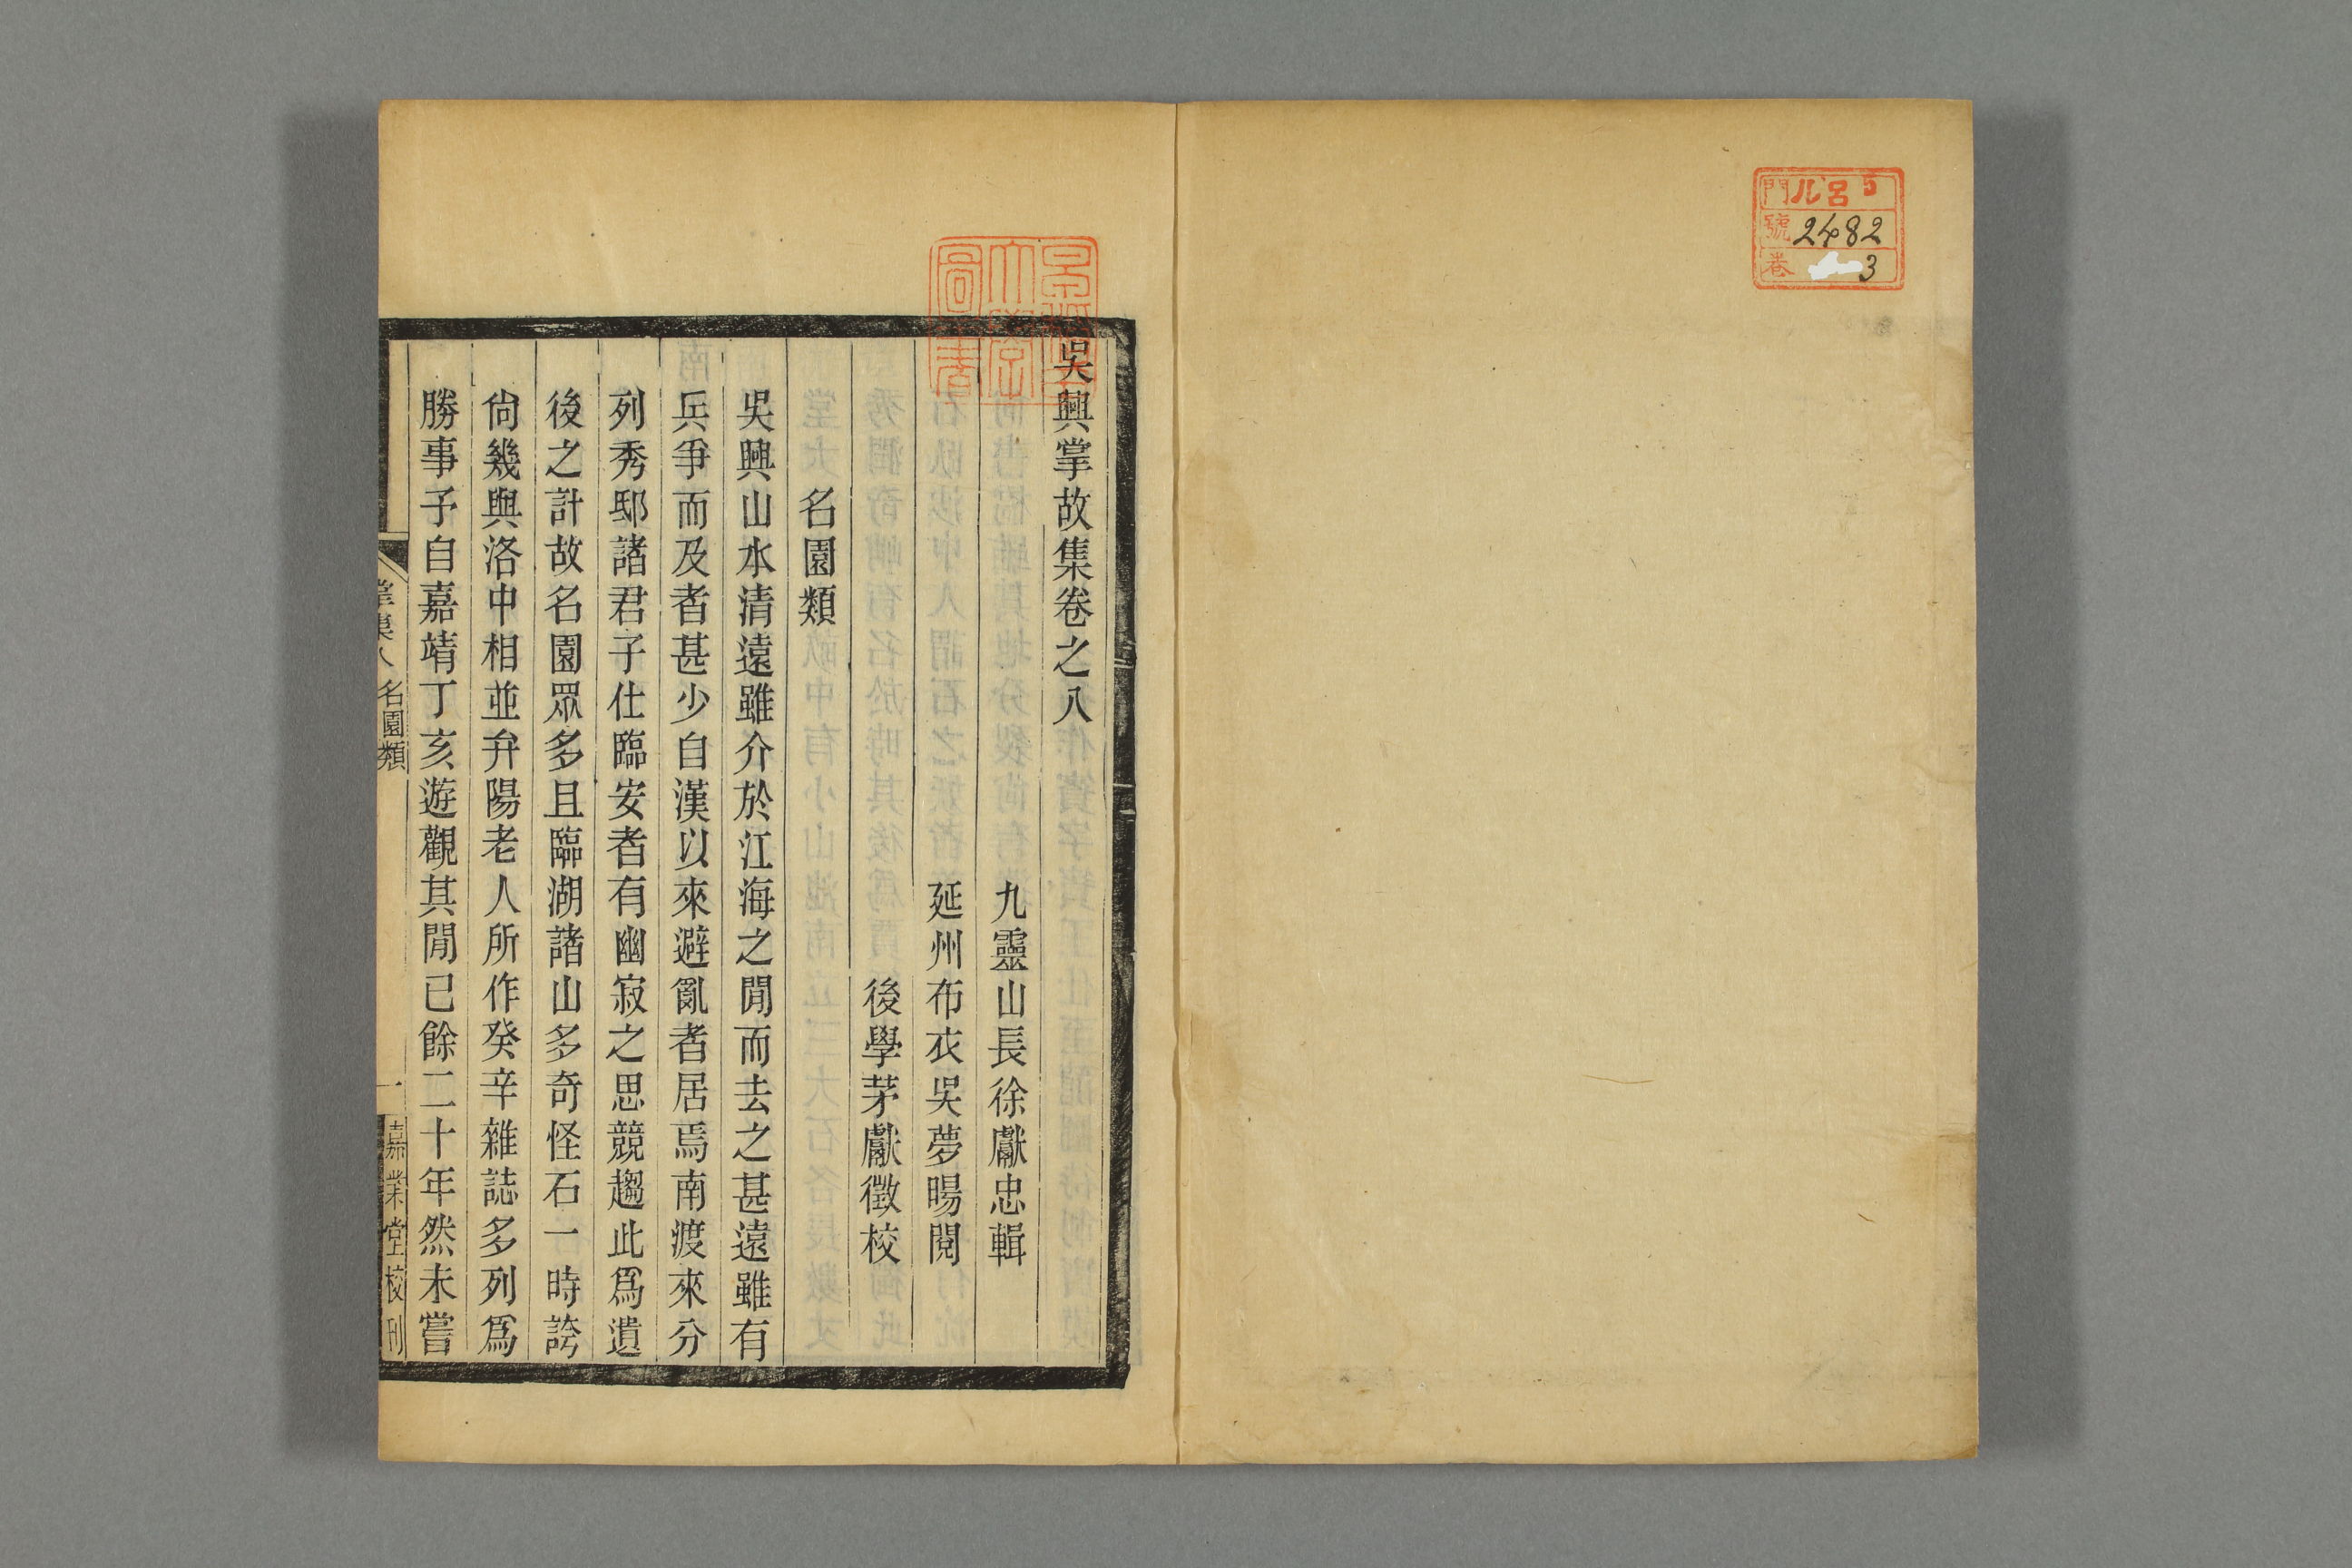 門 ル呂 5
號 2482
巷 3
吳興掌故集卷之八
九靈山長徐獻忠輯
延州布衣吳夢暘閱
後學茅獻徵校
名園類
吳興山水清遠雖介於江海之閒而去之甚遠雖有
兵爭而及者甚少自漢以來避亂者居焉南渡來分
列秀邸諸君子仕臨安者有幽寂之思競趨此爲遺
後之計故名園眾多且臨湖諸山多奇怪石一時誇
尙幾與洛中相並弁陽老人所作癸辛雜誌多列爲
勝事予自嘉靖丁亥遊觀其閒已餘二十年然未嘗
掌集八 名園類 一 嘉業堂校刊